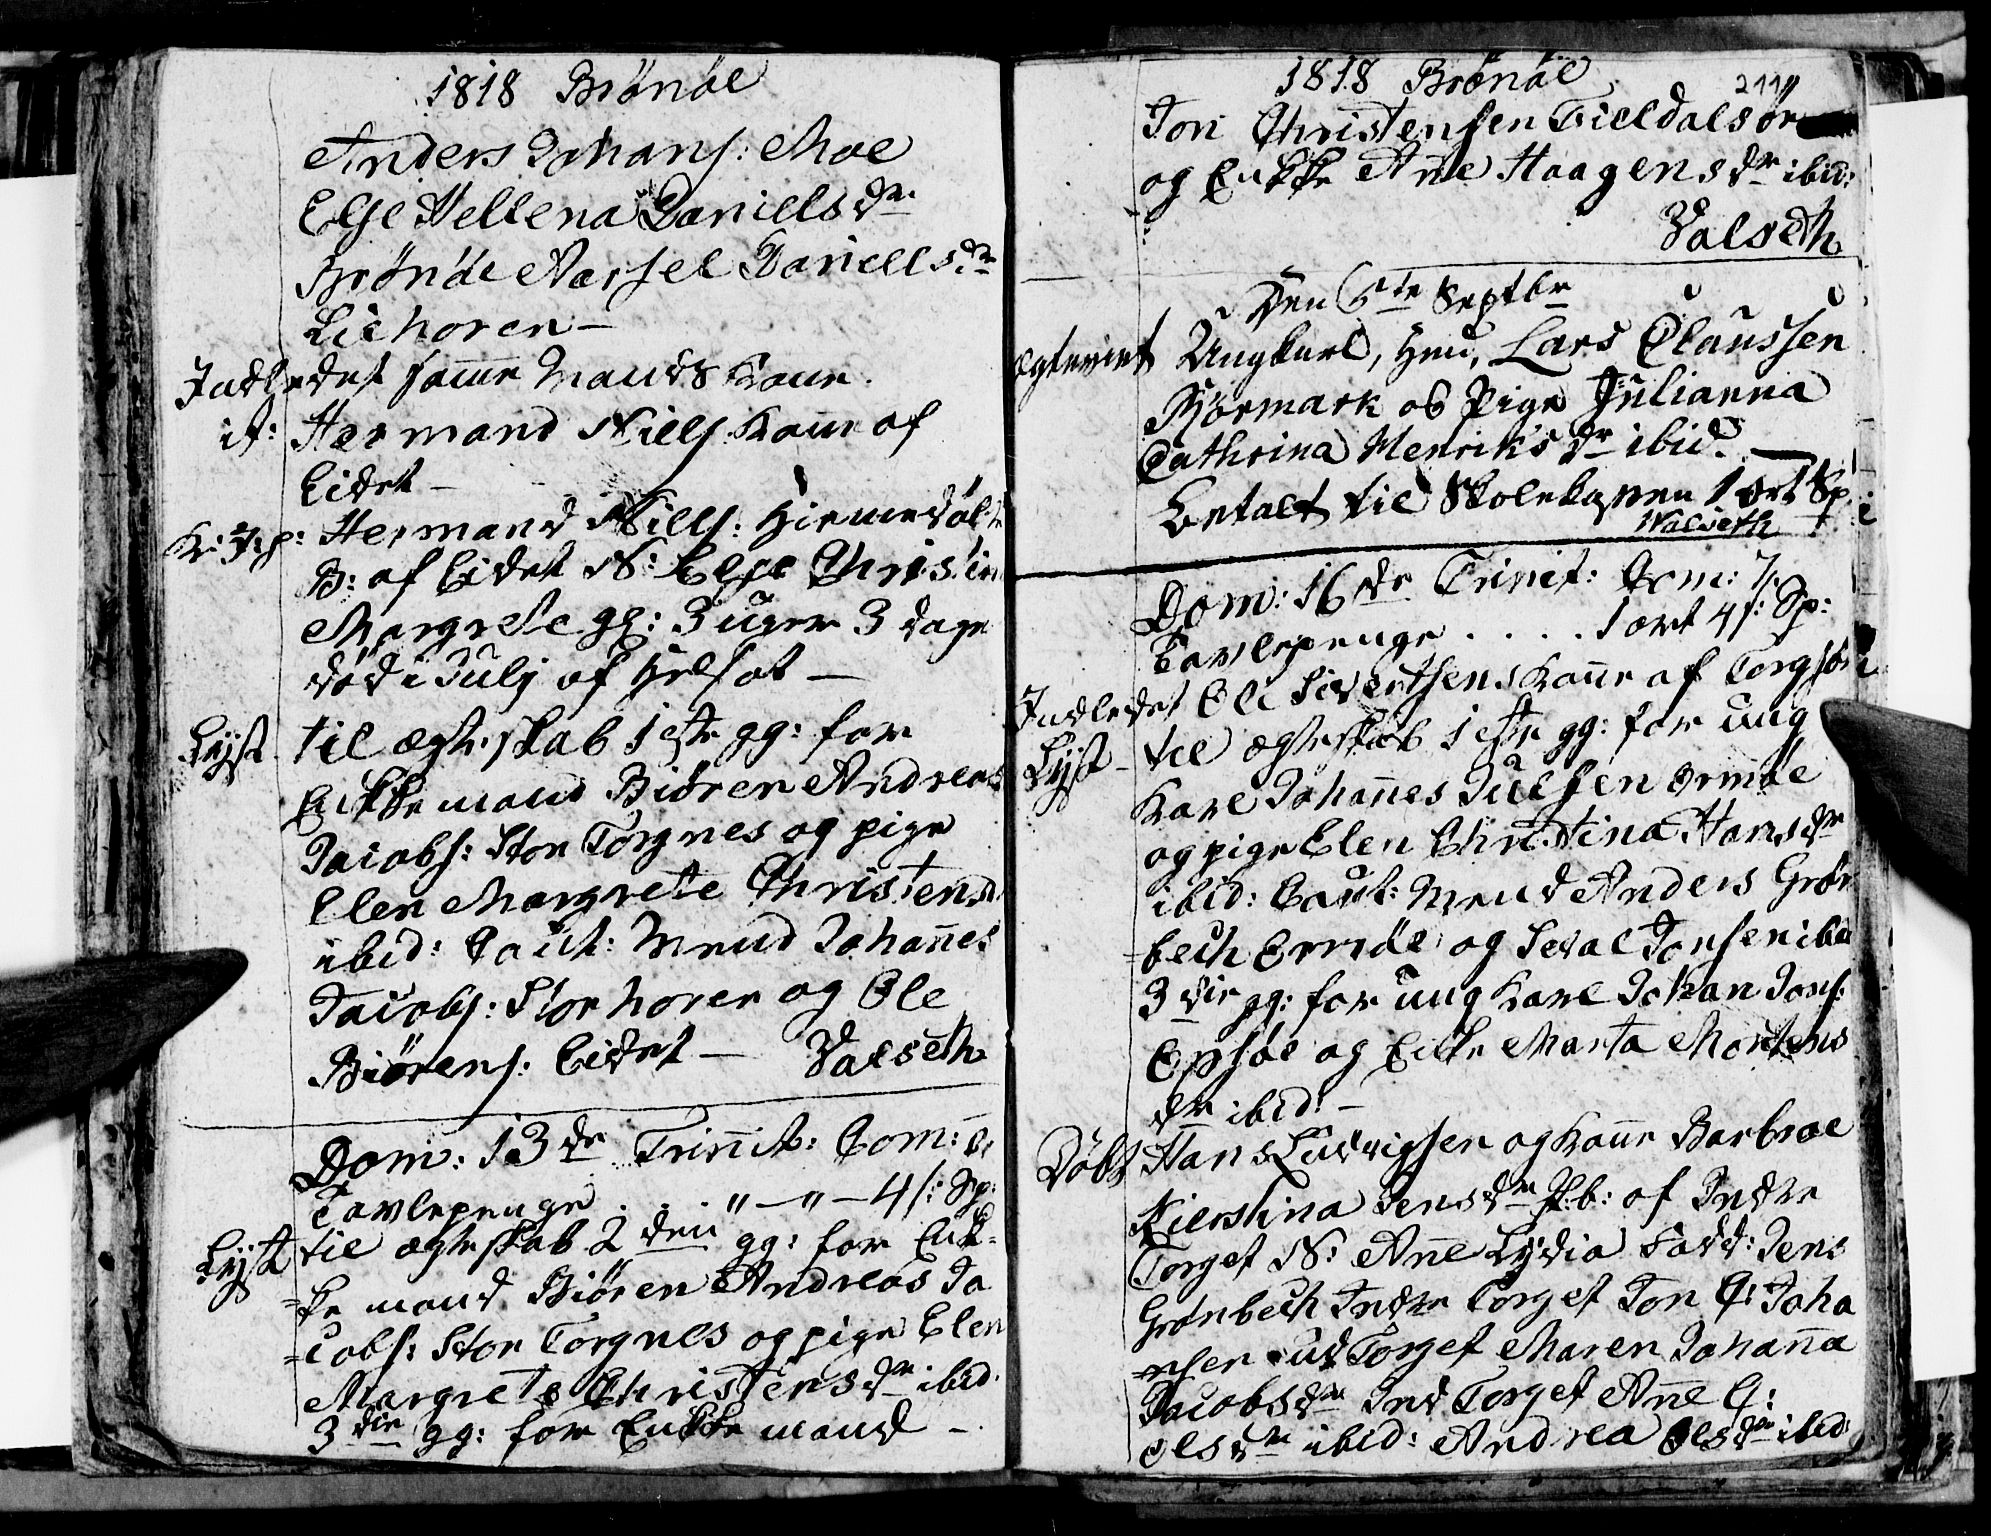 1818 Brönöe
Anders Johans: Moe
Else Hellena Daniels dr
Brönöe Aarsel Daniells dr
Liehoren –
Indledet samme Mands Kone.
it: Hermand Niels. Kone af
Eidet –
Hermand Niels:
B: af Eidet N: Else Christin
Margrete gl: 3 uger 3 dage
död i Julj af
Lyst til ægteskab 1ste gg: for
Enkkemand Biören Andreas
Jacobs: Stor Torgnes og pige
Elen Margrete Christensd
ibid: Caut: Mend Johannes
Jacobs: Storhoren og Ole
Biörens: Eidet – Valseth
Dom: 13de Trinit: Com:
Tavlepenge . . . " – " – 4 s: Sp:
Lyst til ægteskab 2den gg: for Enk-
=ke mand Biören Andreas Ja
=cobs: Stor Torgnes og pige Elen
Margrete Christens dr ibid.
3die gg: for Enkkemand –
1818 Brönöe 211
Jon Christensen Fieldalsör
og Enkke Ane Haagens dr ibid:
Valseth
Den 6te Septbr
Ægteviet Ungkarl, Lars Claussen
Biörmark og Pige Julianna
Cathrina Henriks dr ibid. –
Betalt til Skolekassen 1 ort Sp
Walseth
Dom: 16de Trinit: Com: 7.
Tavlepenge . . . . 1 ort 4 s: Sp:
Indledet Ole Sivertsens Kone af Torg
Lyst – til ægteskab 1ste gg: for ung
Karl Johannes Juelsen Ormöe
og pige Elen Christina Hans dr
ibid: Caut: Mend Anders Grön
=bech Ormöe og Seval Jonsen ibid
3die gg: for ung Karl Johan Jons:
og Enke Marta Mortens
dr ibid: –
Döbt Hans Ludvigsen og Kone Barbroe
Kierstina Jens dr P:b: af Indre
Torget N: Ane Lydia Fadd: Jens
Grönbech Indre Torget Jon C: Joha
=nsen ud Torget Maren Johanna
Jacobs dr Ind Torget Ane C:
Ols dr ibid: Andrea Ols dr ibid: